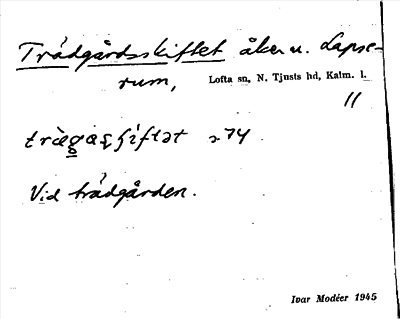 Trädgårdsskiftet åker u. Lapse-
rum, Lofta sn, N. Tjusts hd, Kalm. l.
11
träga ʂʃiftət 274
Vid trädgården.
Ivar Modéer 1945